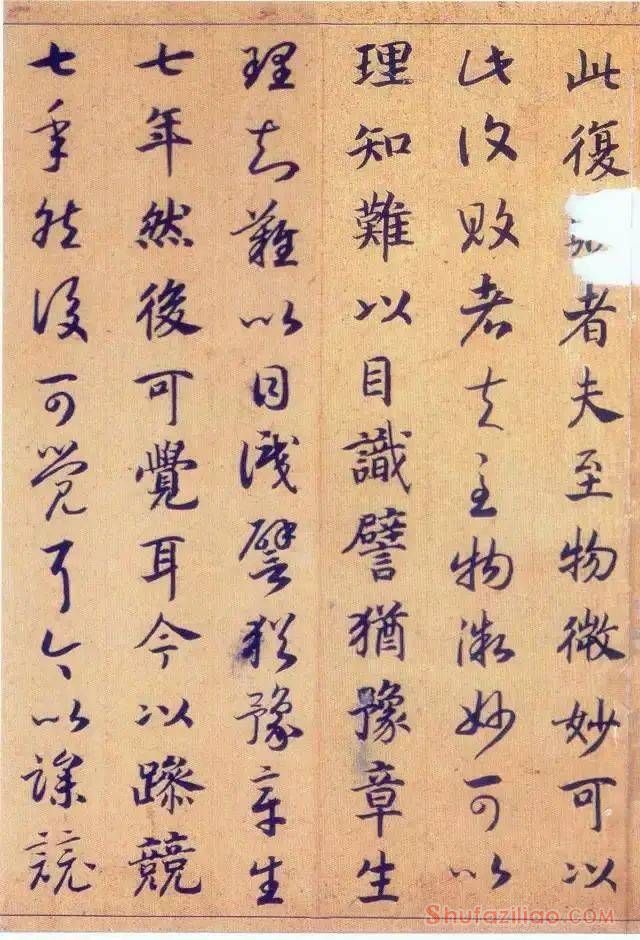 此復者夫至物微妙可以
此復敗者夫至物微妙可以
理知難以目識譬猶豫章生
理知難以目識譬猶豫章生
七年然後可覺耳今以躁競
七年然後可覺耳今以躁競
Shufaziliao.com